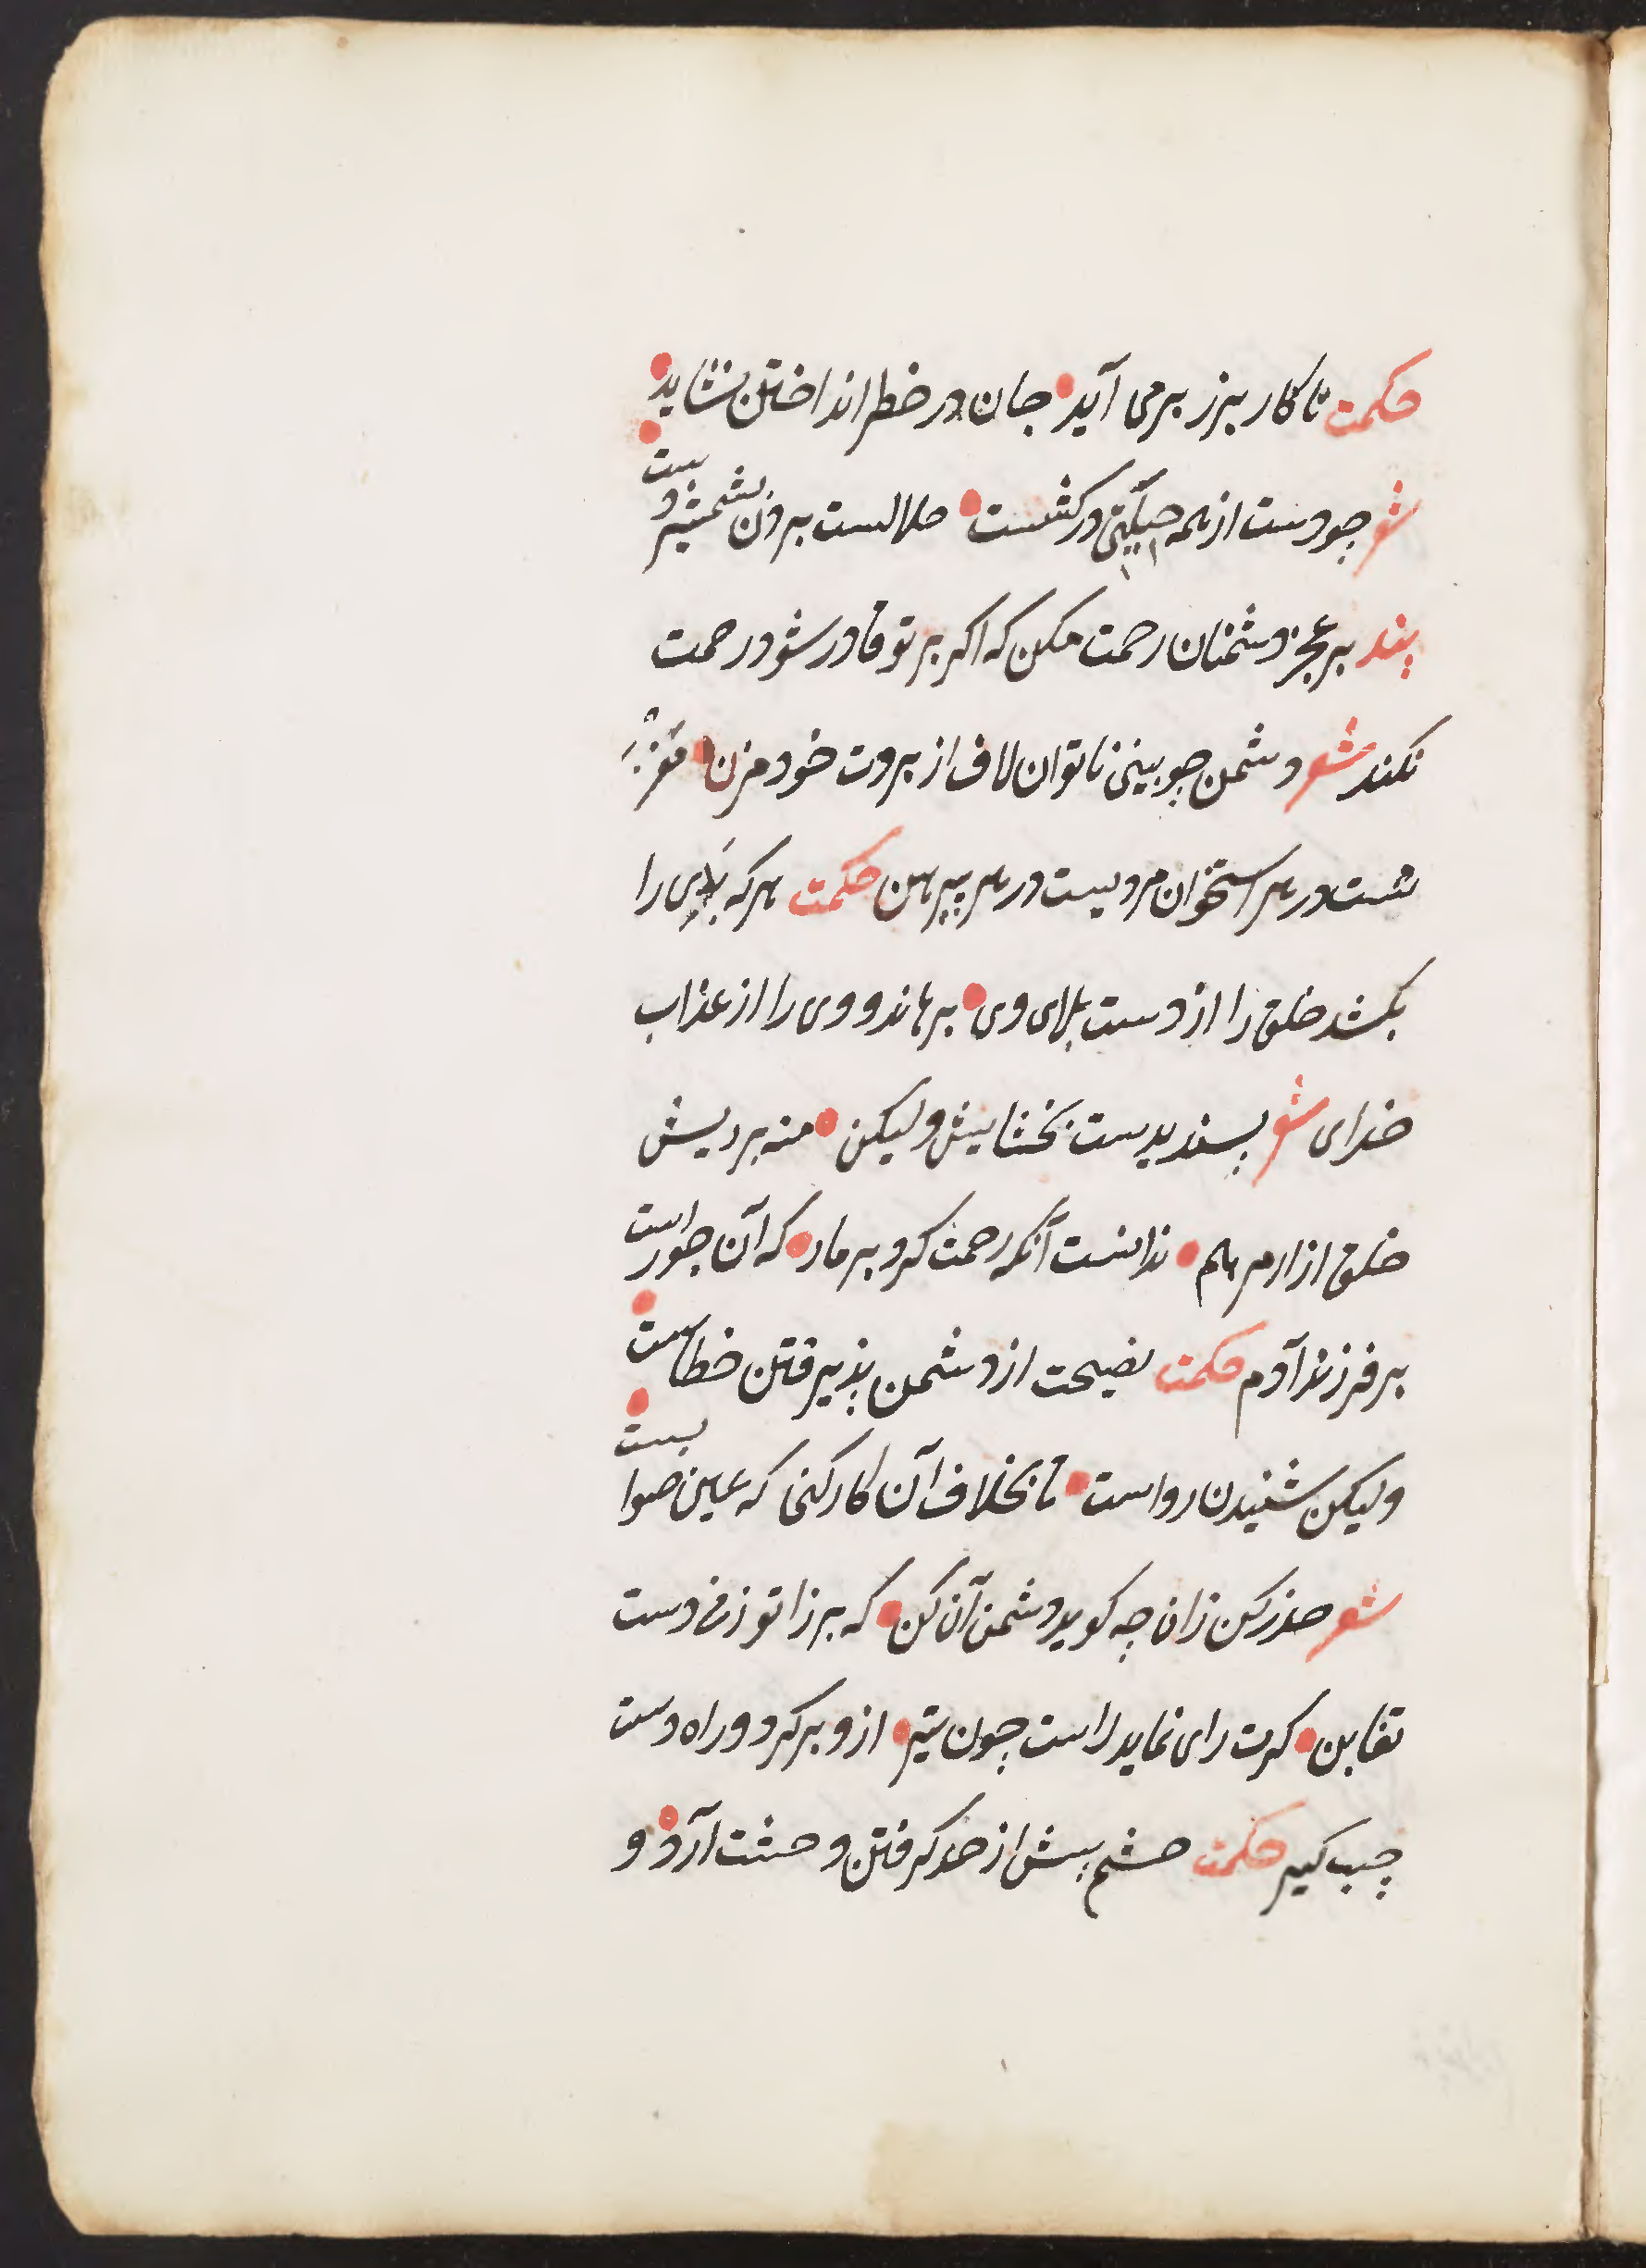 حکمت تا کار بزر برمی آید جان در خطر انداختن نشاید
شعر چو دست از همه حیلتی درکشست حلالست بردن بشمشیر دست
پند بر عجز دشمنان رحمت مکن که اکر بر تو قادر شود رحمت
نکند شعر دشمن چو بینی ناتوان لاف از بروت خود مزن مغز
ست در هر استخوان مردیست در هر پیرهن حکمت هرکه بلایی را
بکشد خلق را از دست بلای وی برهاند و وی را از عذاب
خدای شعر پسندیدست بخشایش ولیکن منه بر ریش
خلق ازار مرهم ندانست آنکه رحمت کرد بر مار که آن جورست
بر فرزند آدم حکمت نصیحت از دشمن پذیرفتن خطاست
ولیکن شنیدن رواست تا بخلاف آن کار کنی که عین صوابست
شعر حذر کن زان چه کوید دشمن آن کن که بر زانو زنی دست
تغابن کرت رای نماید راست چون تیر ازو برکرد و راه دست
چپ کیر حکمت خشم بیش از حد کرفتن وحشت آرد و